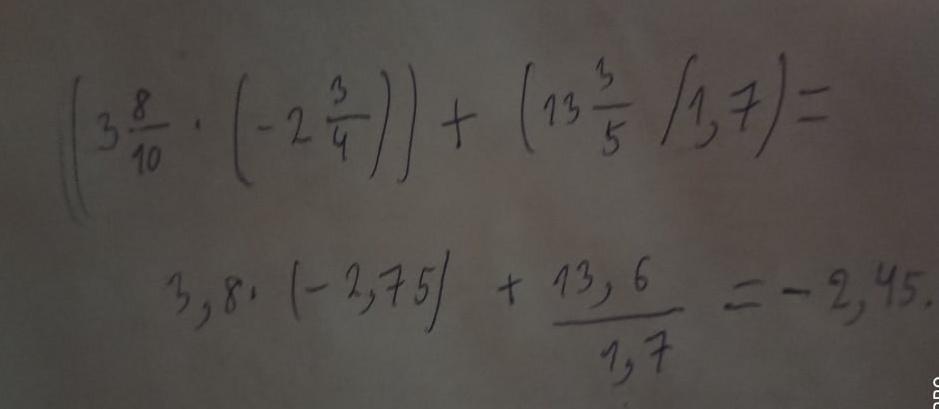 (3 8/10 · (-2 3/4)) + (13 3/5 / 1,7) =
3,8 · (-2,75) + 13,6/1,7 = -2,45.